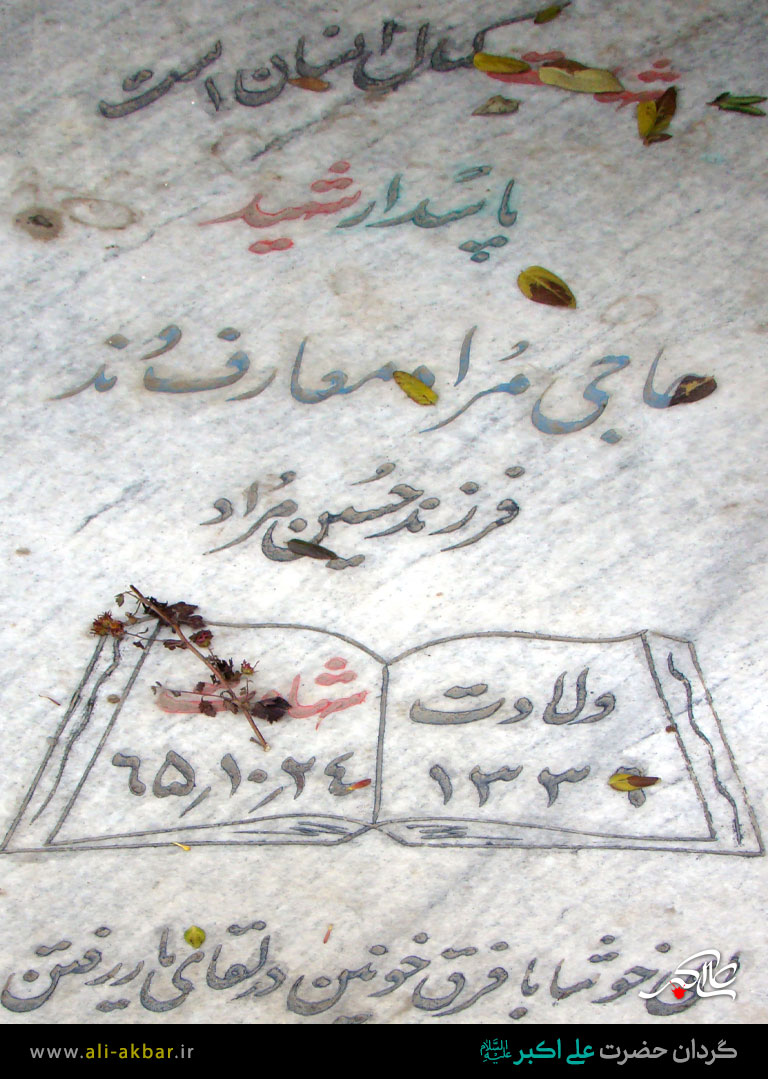 شهادت کمال انسان است
پاسدار شهید
حاجی مراد معارف وند
فرزند حسین مراد
ولادت
شهادت
۱۳۳
۶۵٫۱۰٫۲۴
خوشا با فرق خونین در لقای یار رفتن
علی اکبر
www.ali-akbar.ir
گردان حضرت علی اکبر علیه السلام